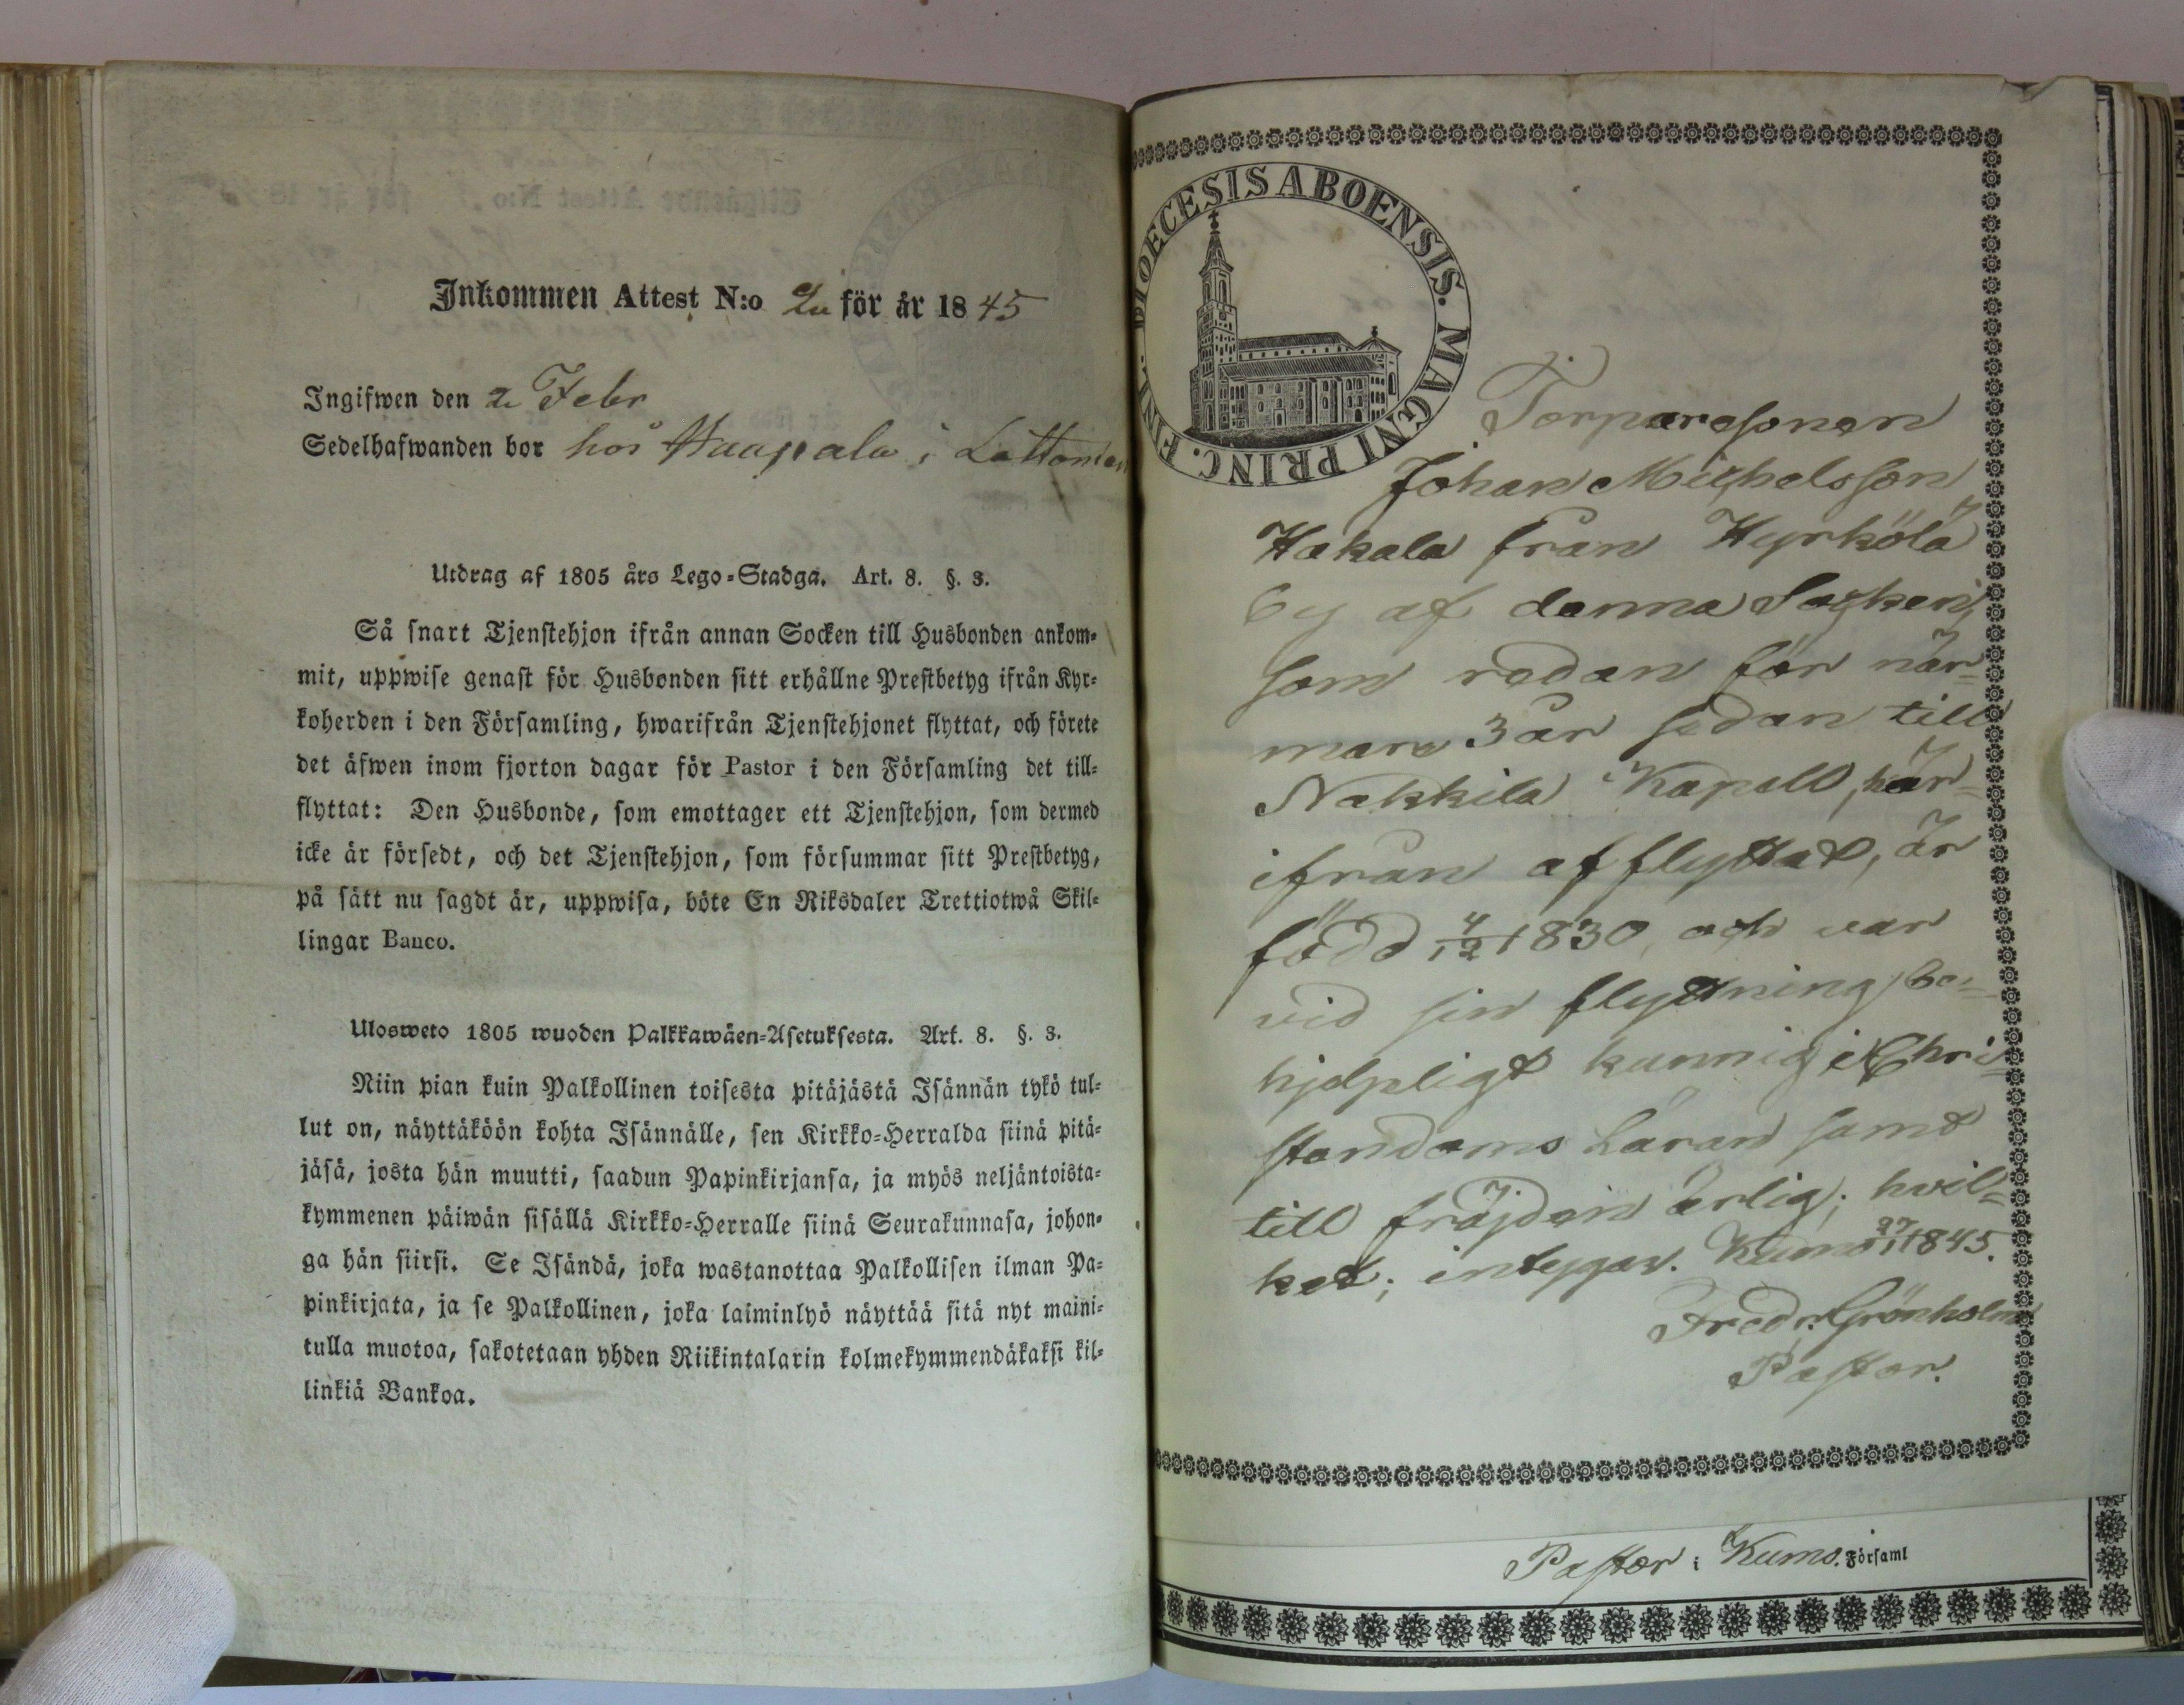 Inkommen Attest N:o 2 för år 1845
Ingifwen den 2 Febr
Sedelhafwanden bor hos Haapala i Lattomeri
Utdrag af 1805 års Lego-Stadga. Art. 8. §. 3.
Så snart Tjenstehjon ifrån annan Socken till Husbonden ankom-
mit, uppwise genast för Husbonden sitt erhållne Prestbetyg ifrån Kyr-
koherden i den Församling, hwarifrån Tjenstehjonet flyttat, och förete
det äfwen inom fjorton dagar för Pastor i den Församling det till-
flyttat: Den Husbonde, som emottager ett Tjenstehjon, som dermed
icke är försedt, och det Tjenstehjon, som försummar sitt Prestbetyg,
på sätt nu sagdt är, uppwisa, böte En Riksdaler Trettiotwå Skil-
lingar Banco.
Ulosweto 1805 wuoden Palkkawäen-Asetuksesta. Art. 8. §. 3.
Niin pian kuin Palkollinen toisesta pitäjästä Isännän tykö tul-
lut on, näyttäköön kohta Isännälle, sen Kirkko-Herralda siinä pitä-
jäsä, josta hän muutti, saadun Papinkirjansa, ja myös neljäntoista-
kymmenen päiwän sisällä Kirkko-Herralle siinä Seurakunnasa, johon-
ga hän siirsi. Se Isändä, joka wastanottaa Palkollisen ilman Pa-
pinkirjata, ja se Palkollinen, joka laiminlyö näyttää sitä nyt maini-
tulla muotoa, sakotetaan yhden Riikintalarin kolmekymmendäkaksi kil-
linkiä Bankoa.
DIOECESIS ABOENSIS. MAGNI PRINC. FINL.
Torparesonen
Johan Michelsson
Hakala från Hyrkölä
by af denna Socken,
som redan för när-
mare 3 år sedan till
Nakkila Kapell, här-
ifrån afflyttat, är
född 4/12 1830, och var
vid sin flyttning be-
hjelpligt kunnig i Chri-
stendoms Läran samt
till fräjden ärlig; hvil-
ket; intygar. Kumo 27/1 1845.
Fredr. Grönholm
Pastor.
Pastor i Kumo. Församl